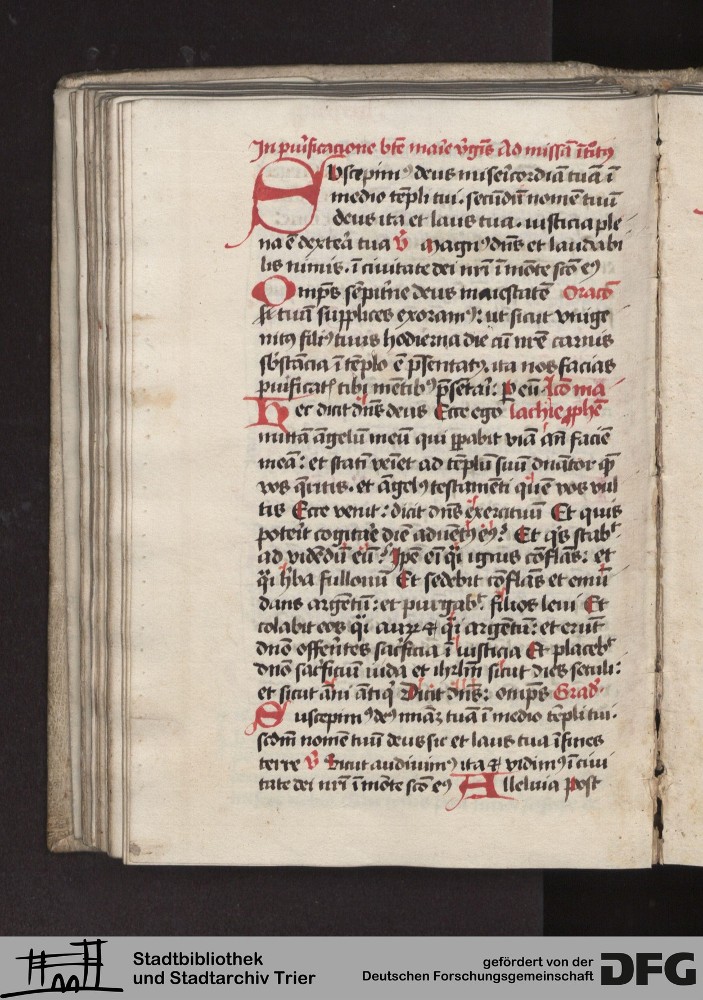 In pur̃ificac̃ione bt̃e marie v̓gĩs Ad missã ĩtroitꝰ
Suscepimꝰ deus misericordiã tuã ĩ
medio tẽpli tui . secundũ nomẽ tuũ
deus ita et laus tua . iusticia ple
na ẽ dextera tua v̓ Magnꝰ dñs et laudabi
lis nimis . ĩ ciuitate dei nr̃i ĩ mõte scõ eiꝰ
Omp̃s sẽpit̃ne deus maiestatẽ Oracõ
tuã supplices exoramꝰ : ut sicut vnige
nitus filiꝰ tuus hodierna die cũ nr̃e carnis
sb̃stãcia ĩ tẽplo ẽ p̃sentatꝰ . ita nos facias
purificatꝭ tibi mẽtibꝰ p̃sẽtari : ꝑ eũ . Lc̃o ma
Hec dicit dñs deus Ecce ego lachie ꝓphẽ
mittã ãgelũ meũ qui p̃parabit viã añ faciẽ
meã : et statĩ veĩet ad tẽplũ suũ dñator quẽ
vos q̃ritis . et ãgelꝰ testamẽti quẽ vos vul
tis Ecce venit : dicit dñs exercituũ Et quis
poterit cogitare diẽ aduẽtꝰ eiꝰ ? Et q̃s stabit
ad vidẽdũ eũ ? Ip̃e eĩ q̃i ignis cõflãs : et
q̃i hẽba fullonũ Et sedebit cõflãs et emũ
dans argẽtũ : et purgabit filios leui Et
colabit eos q̃i aurꝝ et q̃i argẽtũ : et erũt
dñõ offerẽtes sac̃ficia ĩ iusticia Et placebit
dñõ sac̃ficiũ iuda et ihrl̃m sicut dies seculi :
et sicut ãni ãtiq̃ Dicit dñs : omp̃s Grad̃ .
Suscepimꝰ deꝰ mi᷑aꝫ tuã ĩ medio tẽpli tui .
scdm̃ nomẽ tuũ deus sic et laus tua ĩ fines
terre v̓ Sicut audiuimꝰ ita et vidimꝰ ĩ ciui
tate dei nr̃i ĩ mõte scõ eiꝰ Alleluia Post
Stadtbibliothek
und Stadtarchiv Trier
gefördert von der
Deutschen Forschungsgemeinschaft
DFG